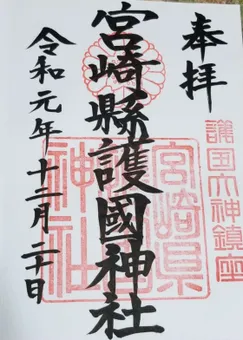 奉拝
護国大神鎮座
宮崎縣護國神社
宮崎県
神社
令和元年十二月二十日